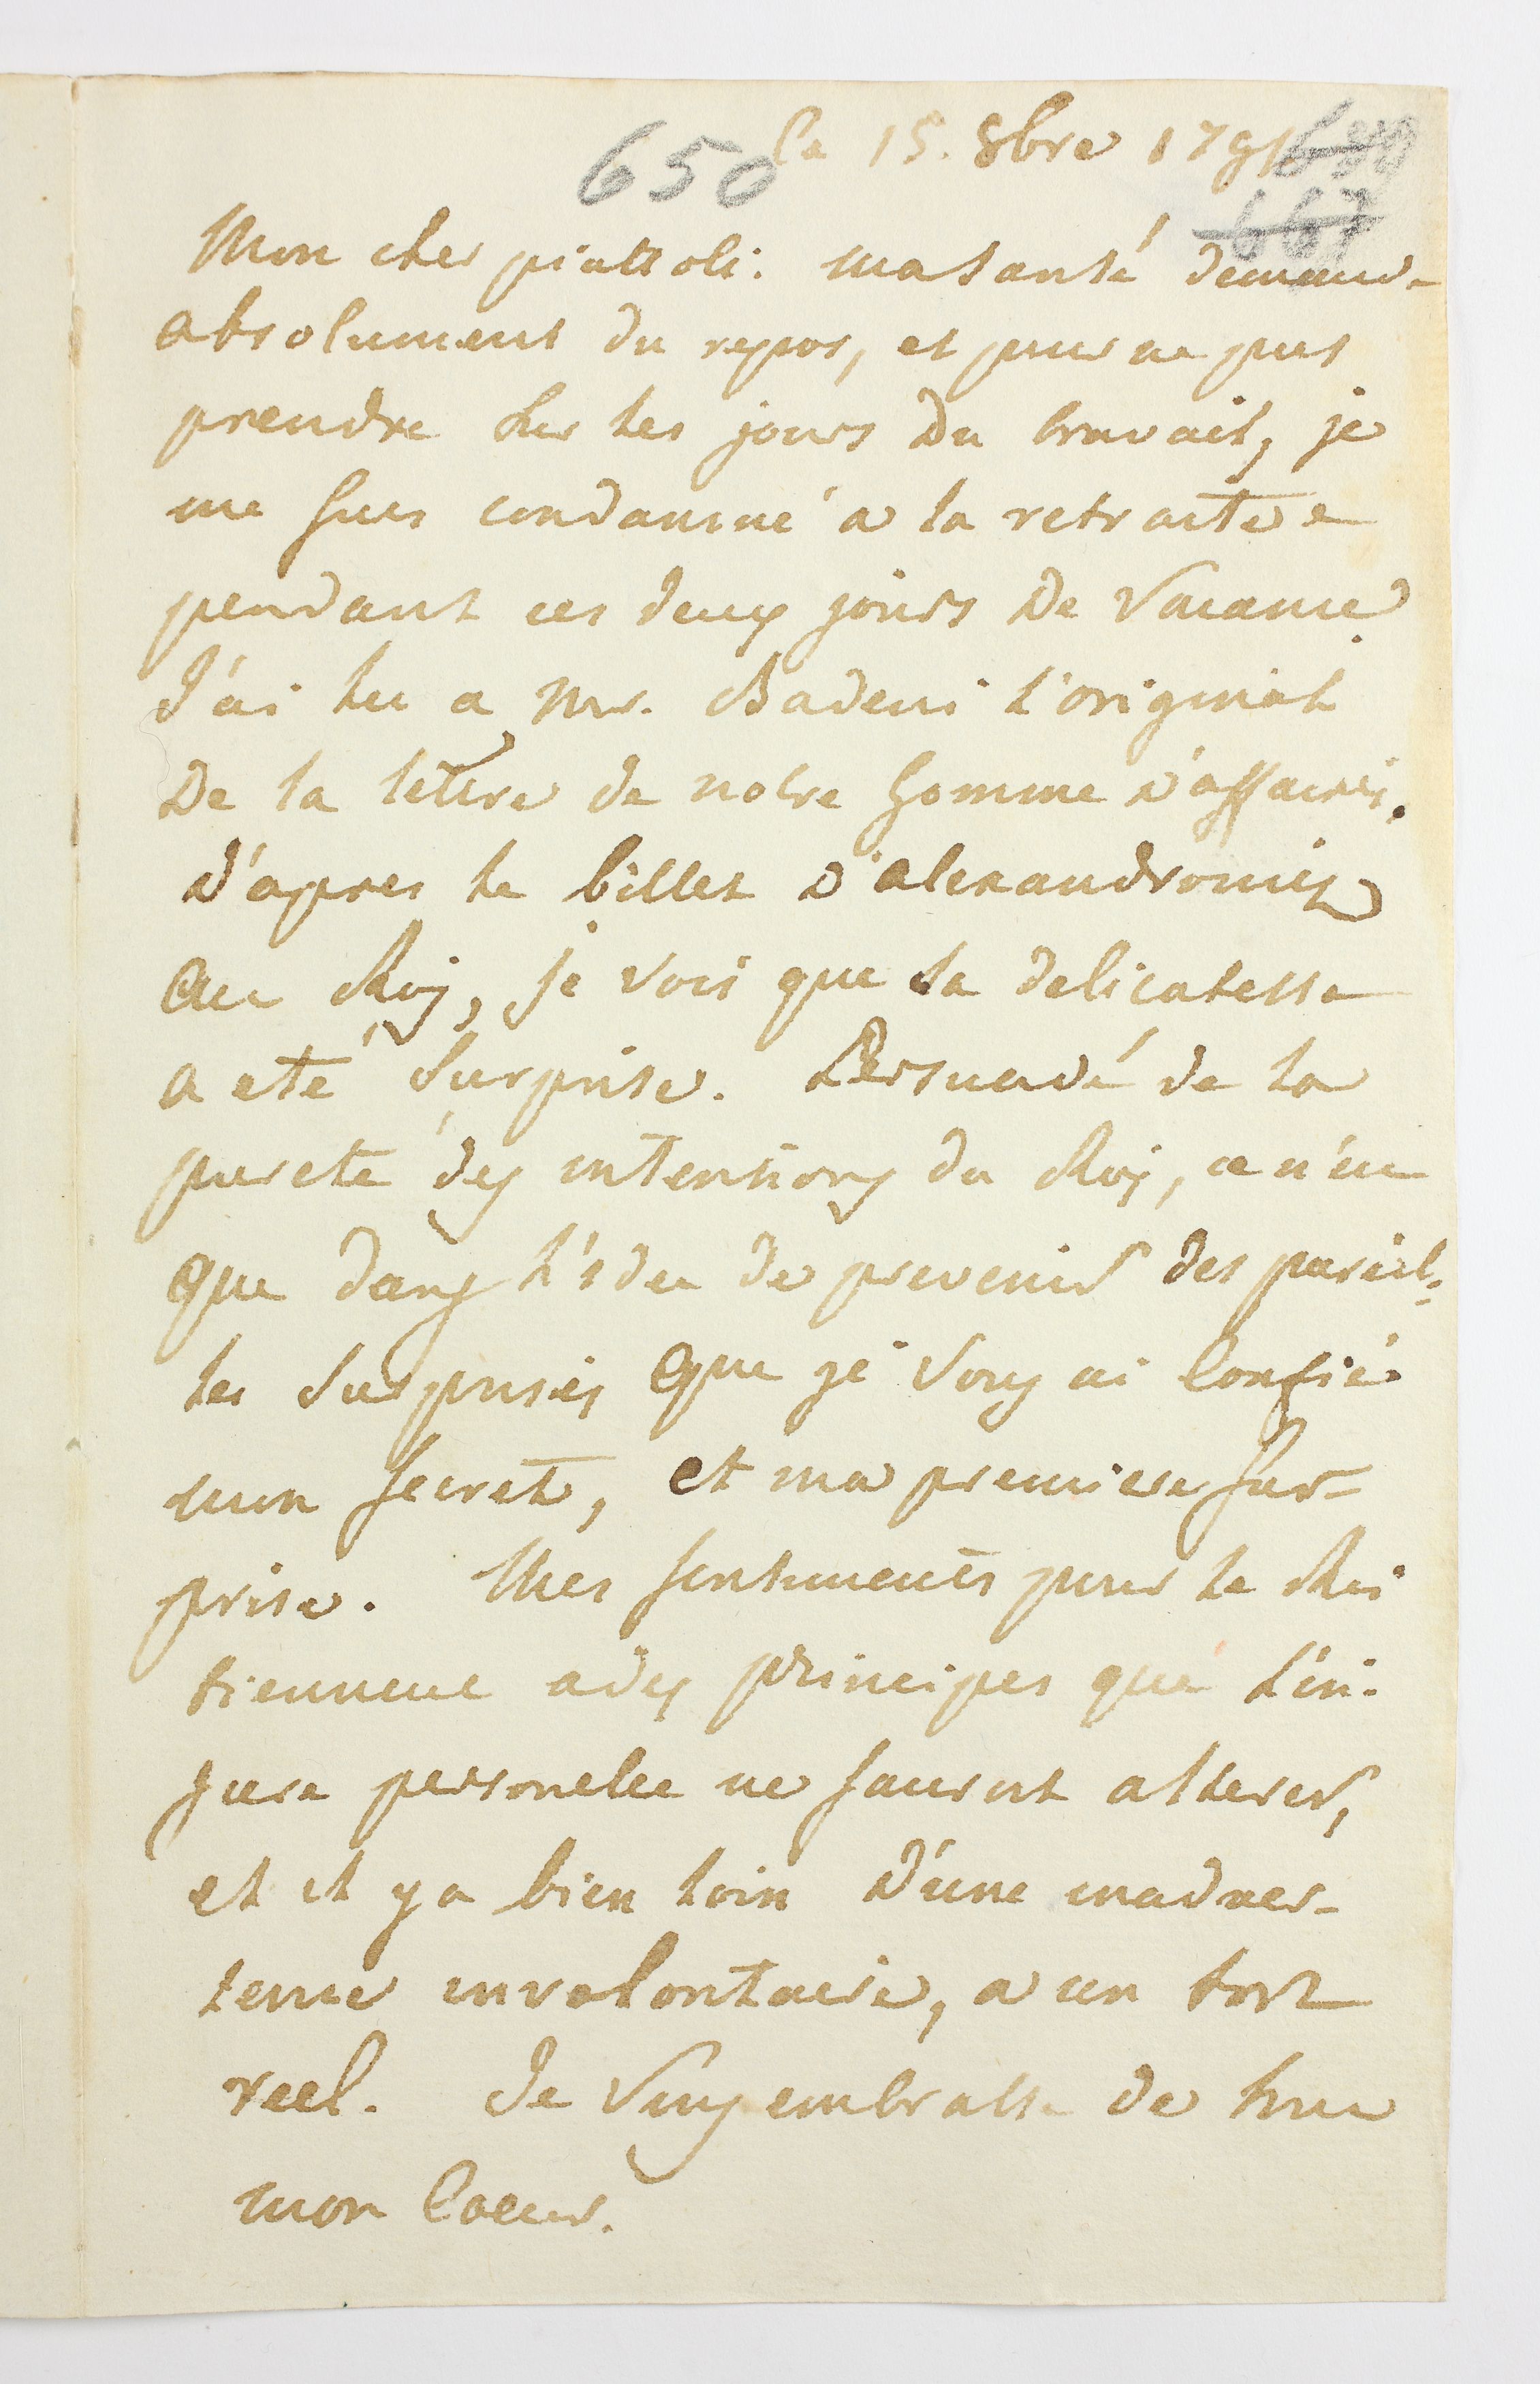 650 Ce 15. 8bre 1791 639
667
Mon cher piattoli. ma santé demande
absolument du repos, et pour ne pas
prendre sur les jours du travail, je
me suis condamné a la retraite
pendant ces deux jours de Vacance.
J'ai lu a Mr. Badeni l'original
De la lettre de notre homme d'affaires.
d'apres le billet d'alexandrowicz
au Roy, je vois que sa delicatesse
a eté surprise. Persuadé de la
pureté des intentions du Roy, ce n'est
que dans l'idee de prevenir des pareil-
les surprises que je vous ai confié
mon secret, et ma premiere sur-
prise. Mes sentiments pour le Roi
tiennent a des principes que l'in-
jure personelle ne sauroit alterer,
et il y a bien loin d'une inadver-
tence involontaire, a un tort
reel. Je vous embrasse de tout
mon coeur.